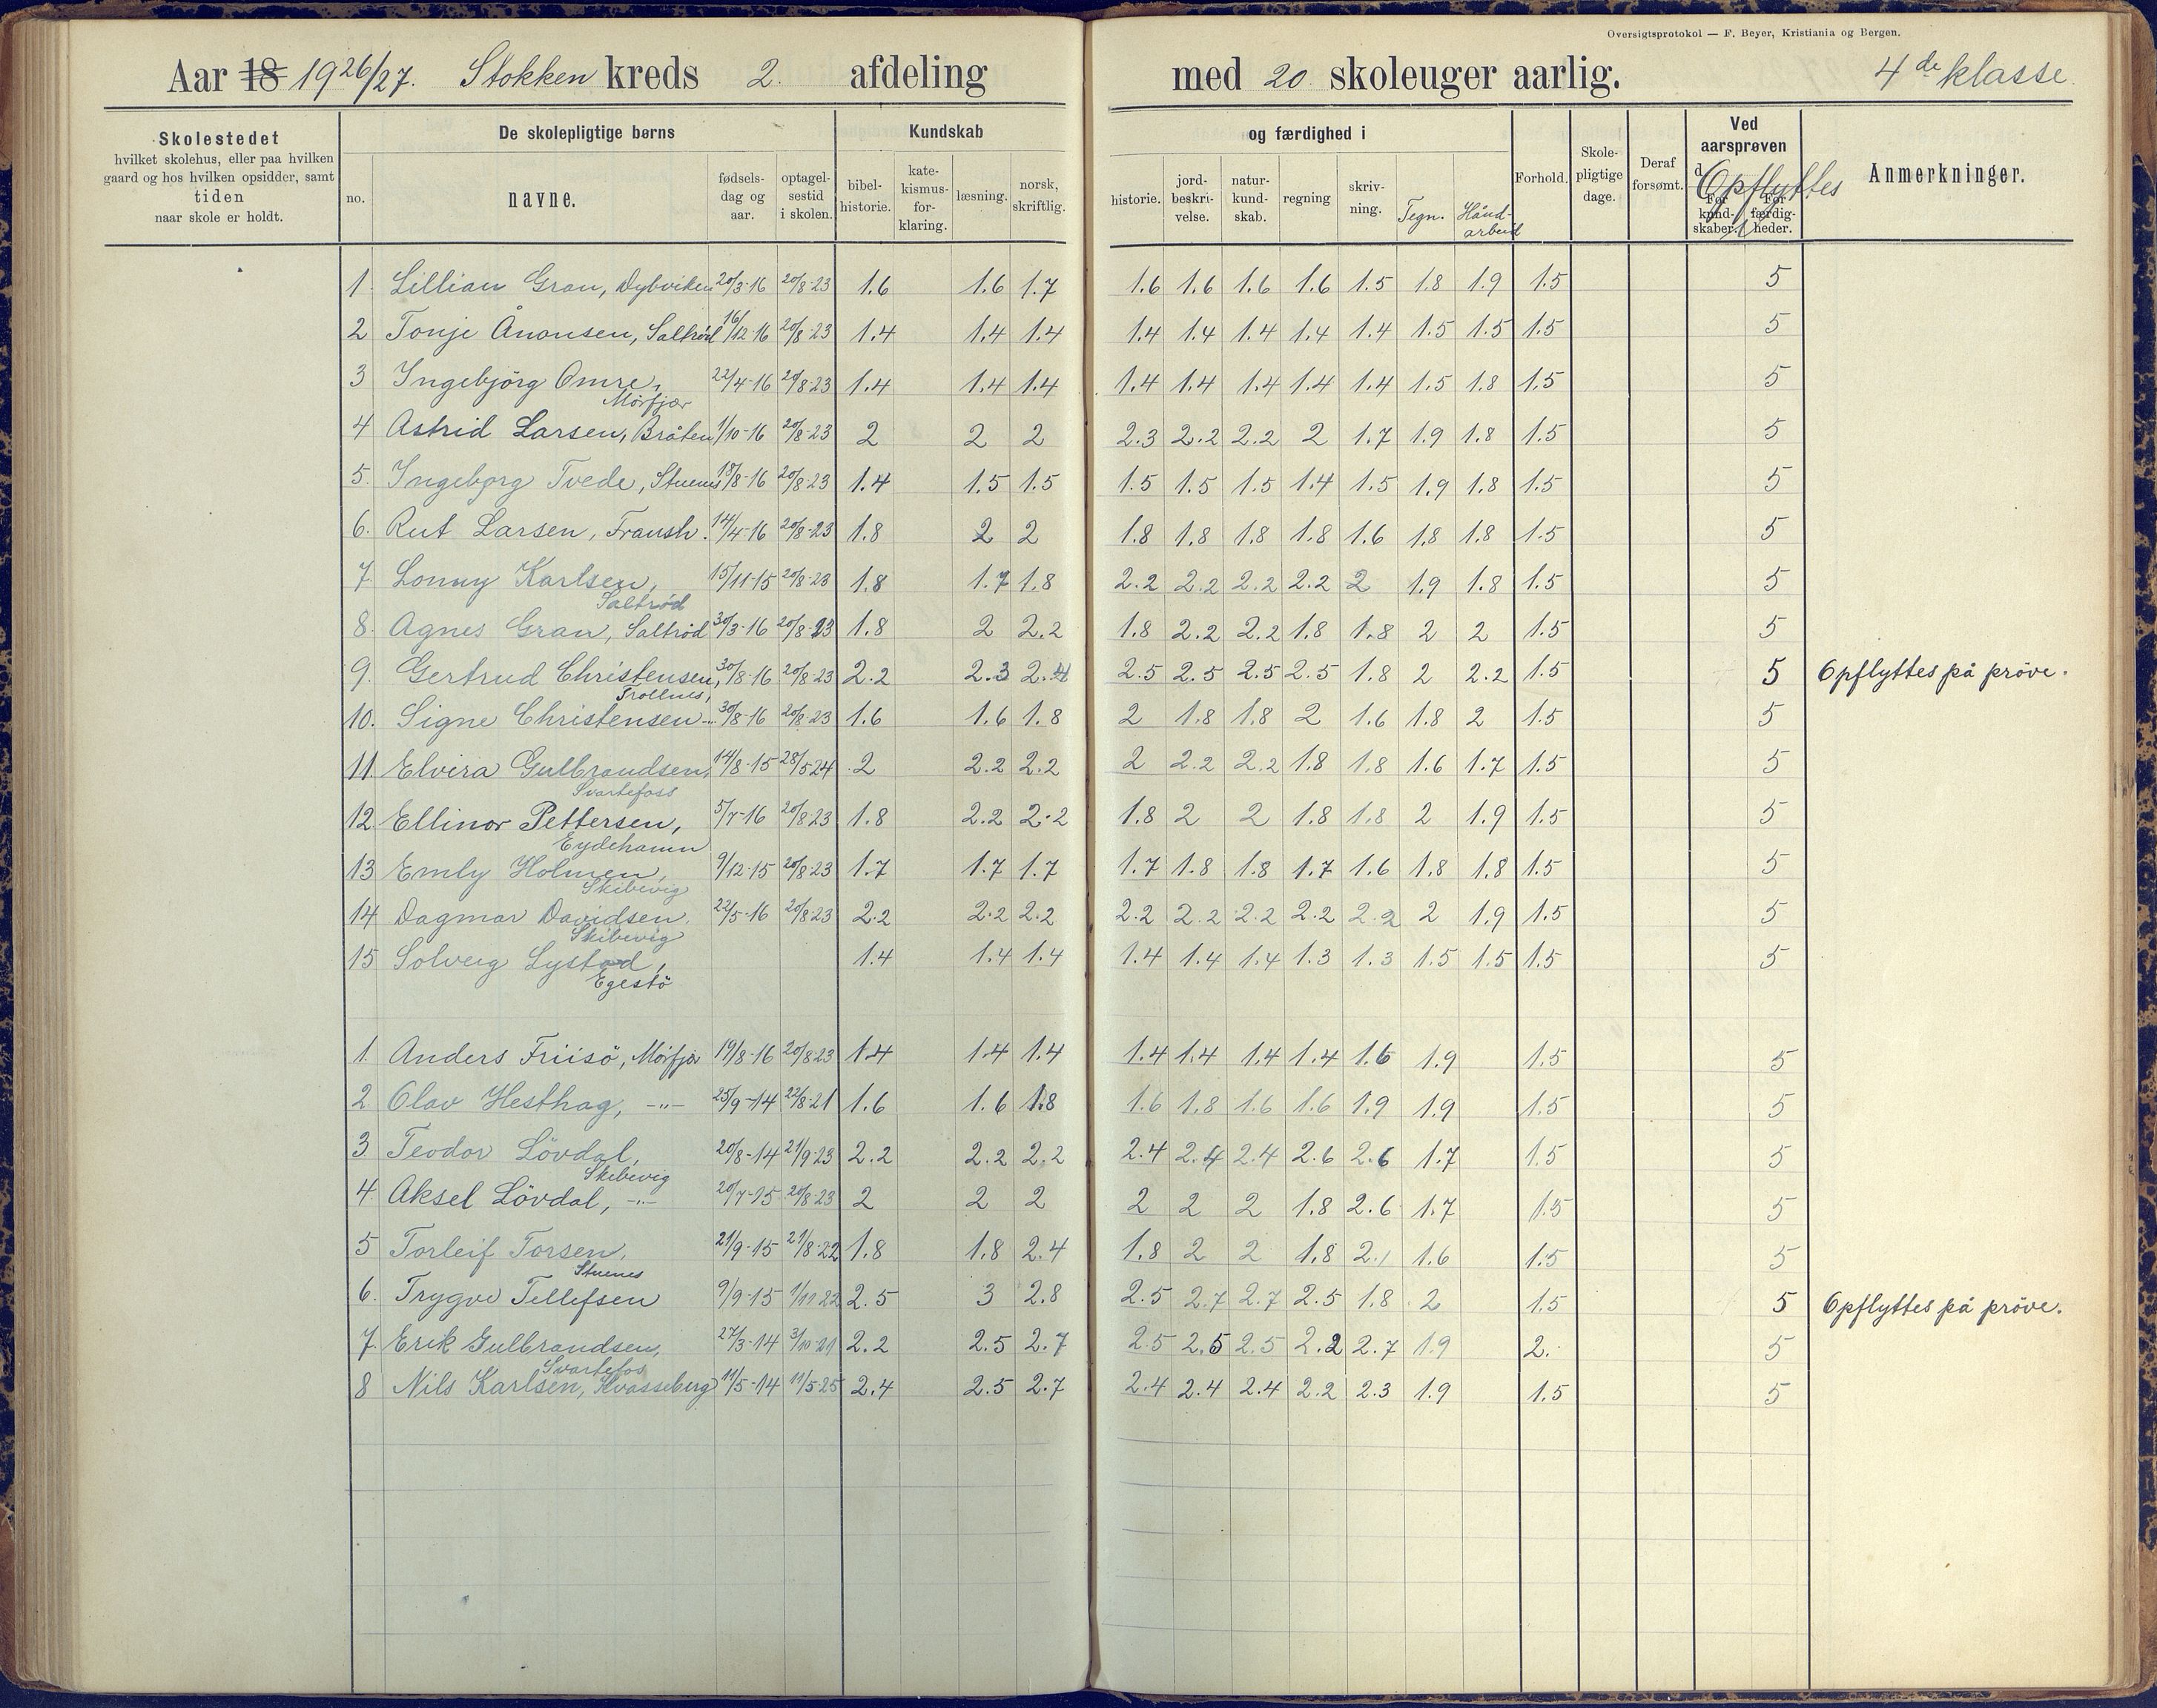 Oversigtsprotokol — F. Beyer, Kristiania og Bergen.
Aar 18 1926/27. Stokken kreds 2. afdeling med 20 skoleuger aarlig. 4de klasse
Skolestedet hvilket skolehus, eller paa hvilken gaard og hos hvilken opsidder, samt tiden naar skole er holdt.
De skolepligtige børns
no. navne. fødsels-dag og aar. optagel-sestid i skolen.
Kundskab og færdighed i
bibel-historie. kate-kismus-for-klaring. læsning. norsk, skriftlig. historie. jord-beskri-velse. natur-kund-skab. regning skriv-ning. Tegn. Hånd-arbeid
Forhold. Skole-pligtige dage. Deraf forsømt.
Ved aarsprøven
Opflyttes
For kund-skaber. For færdig-heder.
Anmerkninger.
1. Lillian Gran, Dybviken 20/3-16 20/8-23 1.6 1.6 1.7 1.6 1.6 1.6 1.6 1.5 1.8 1.9 1.5 5
2 Tonje Ånonsen, Saltrød 16/12-16 20/8-23 1.4 1.4 1.4 1.4 1.4 1.4 1.4 1.4 1.5 1.5 1.5 5
3 Ingebjörg Omre, 22/4-16 20/8-23 1.4 1.4 1.4 1.4 1.4 1.4 1.4 1.4 1.5 1.8 1.5 5
Mørfjær
4 Astrid Larsen, Bråten 1/10-16 20/8-23 2 2 2 2.3 2.2 2.2 2 1.7 1.9 1.8 1.5 5
5. Ingeborg Tvede, Stuenes 18/8-16 20/8-23 1.4 1.5 1.5 1.5 1.5 1.5 1.4 1.5 1.9 1.8 1.5 5
6. Rut Larsen, Fransh. 14/4-16 20/8-23 1.8 2 2 1.8 1.8 1.8 1.8 1.6 1.8 1.8 1.5 5
7. Lonny Karlsen, 15/11-15 20/8-23 1.8 1.7 1.8 2.2 2.2 2.2 2.2 2 1.9 1.8 1.5 5
Saltrød
8. Agnes Gran, Saltrød 30/3-16 20/8-23 1.8 2 2.2 1.8 2.2 2.2 1.8 1.8 2 2 1.5 5
9. Gertrud Christensen, 30/8-16 20/8-23 2.2 2.3 2.4 2.5 2.5 2.5 2.5 1.8 2 2.2 1.5 5 Opflyttes på pröve.
Trollnes,
10. Signe Christensen -"- 30/8-16 20/8-23 1.6 1.6 1.8 2 1.8 1.8 2 1.6 1.8 2 1.5 5
11. Elvira Gulbrandsen, 14/8-15 28/5 24 2 2.2 2.2 2 2.2 2.2 1.8 1.8 1.6 1.7 1.5 5
Svartefoss
12. Ellinor Pettersen, 5/7-16 20/8 23 1.8 2.2 2.2 1.8 2 2 1.8 1.8 2 1.9 1.5 5
Eydehamn
13 Emly Holmen, 9/12-15 20/8-23 1.7 1.7 1.7 1.7 1.8 1.8 1.7 1.6 1.8 1.8 1.5 5
Skibevig
14 Dagmar Davidsen. 22/5-16 20/8-23 2.2 2.2 2.2 2.2 2.2 2.2 2.2 2.2 2 1.9 1.5 5
Skibevig
15 Solveig Lystad, 1.4 1.4 1.4 1.4 1.4 1.4 1.3 1.3 1.5 1.5 1.5 5
Egestö
1. Anders Friisö, Mørfjær 19/8-16 20/8-23 1.4 1.4 1.4 1.4 1.4 1.4 1.4 1.6 1.9 1.5 5
2. Olav Hesthag, -"- 25/9-14 22/8-21 1.6 1.6 1.8 1.6 1.8 1.6 1.6 1.9 1.9 1.5 5
3 Teodor Lövdal, 20/8-14 21/9-23 2.2 2.2 2.2 2.4 2.4 2.4 2.6 2.6 1.7 1.5 5
Skibevig
4. Aksel Lövdal, -"- 20/7-15 20/8-23 2 2 2 2 2 2 1.8 2.6 1.7 1.5 5
5 Torleif Torsen, 21/9-15 21/8-22 1.8 1.8 2.4 1.8 2 2 1.8 2.1 1.6 1.5 5
Stuenes
6. Trygve Tellefsen 9/9-15 1/11-22 2.5 3 2.8 2.5 2.7 2.7 2.5 1.8 2 1.5 5 Opflyttes på pröve.
7. Erik Gulbrandsen, 27/3-14 3/10-21 2.2 2.5 2.7 2.5 2.5 2.5 2.2 2.7 1.9 2. 5
Svartefos
8 Nils Karlsen, Kvasseberg 11/5-14 11/5-25 2.4 2.5 2.7 2.4 2.4 2.4 2.2 2.3 1.9 1.5 5